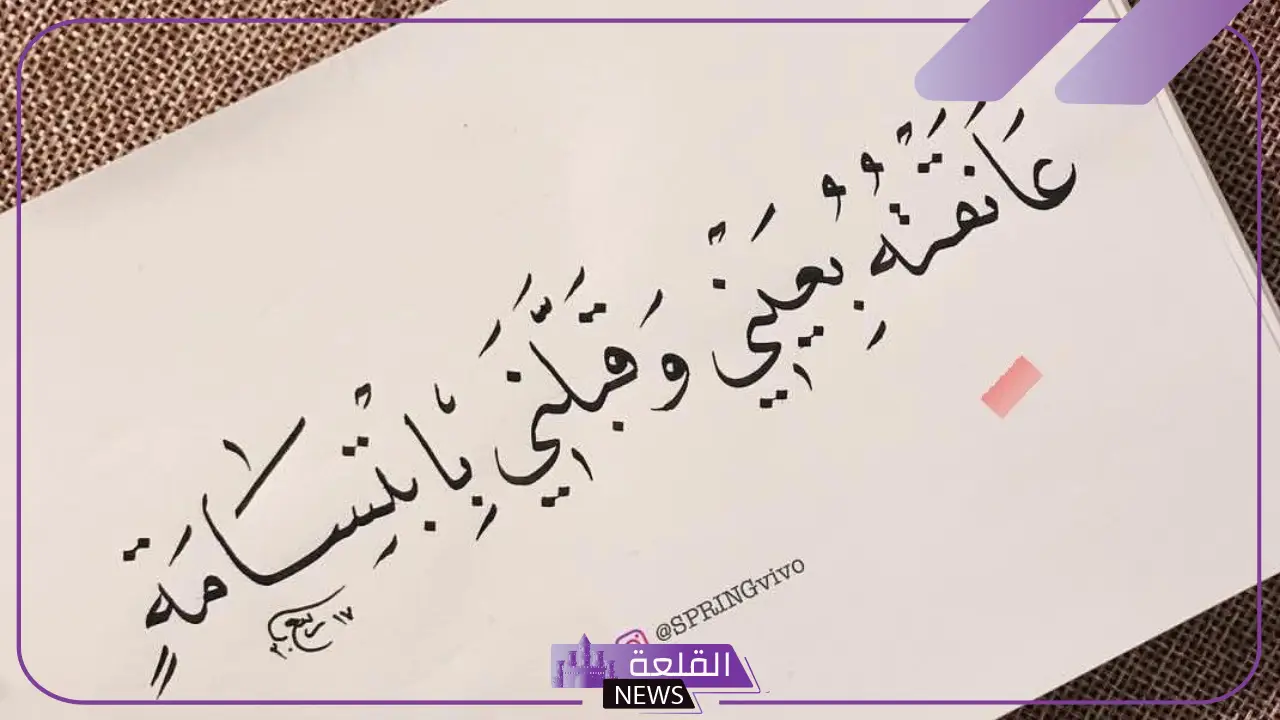 عَانَقْتَهُ بِعَيْنِي وَقَبَّلَنِي بِابْتِسَامَةٍ
@SPRINGvivo
القلعة
NEWS